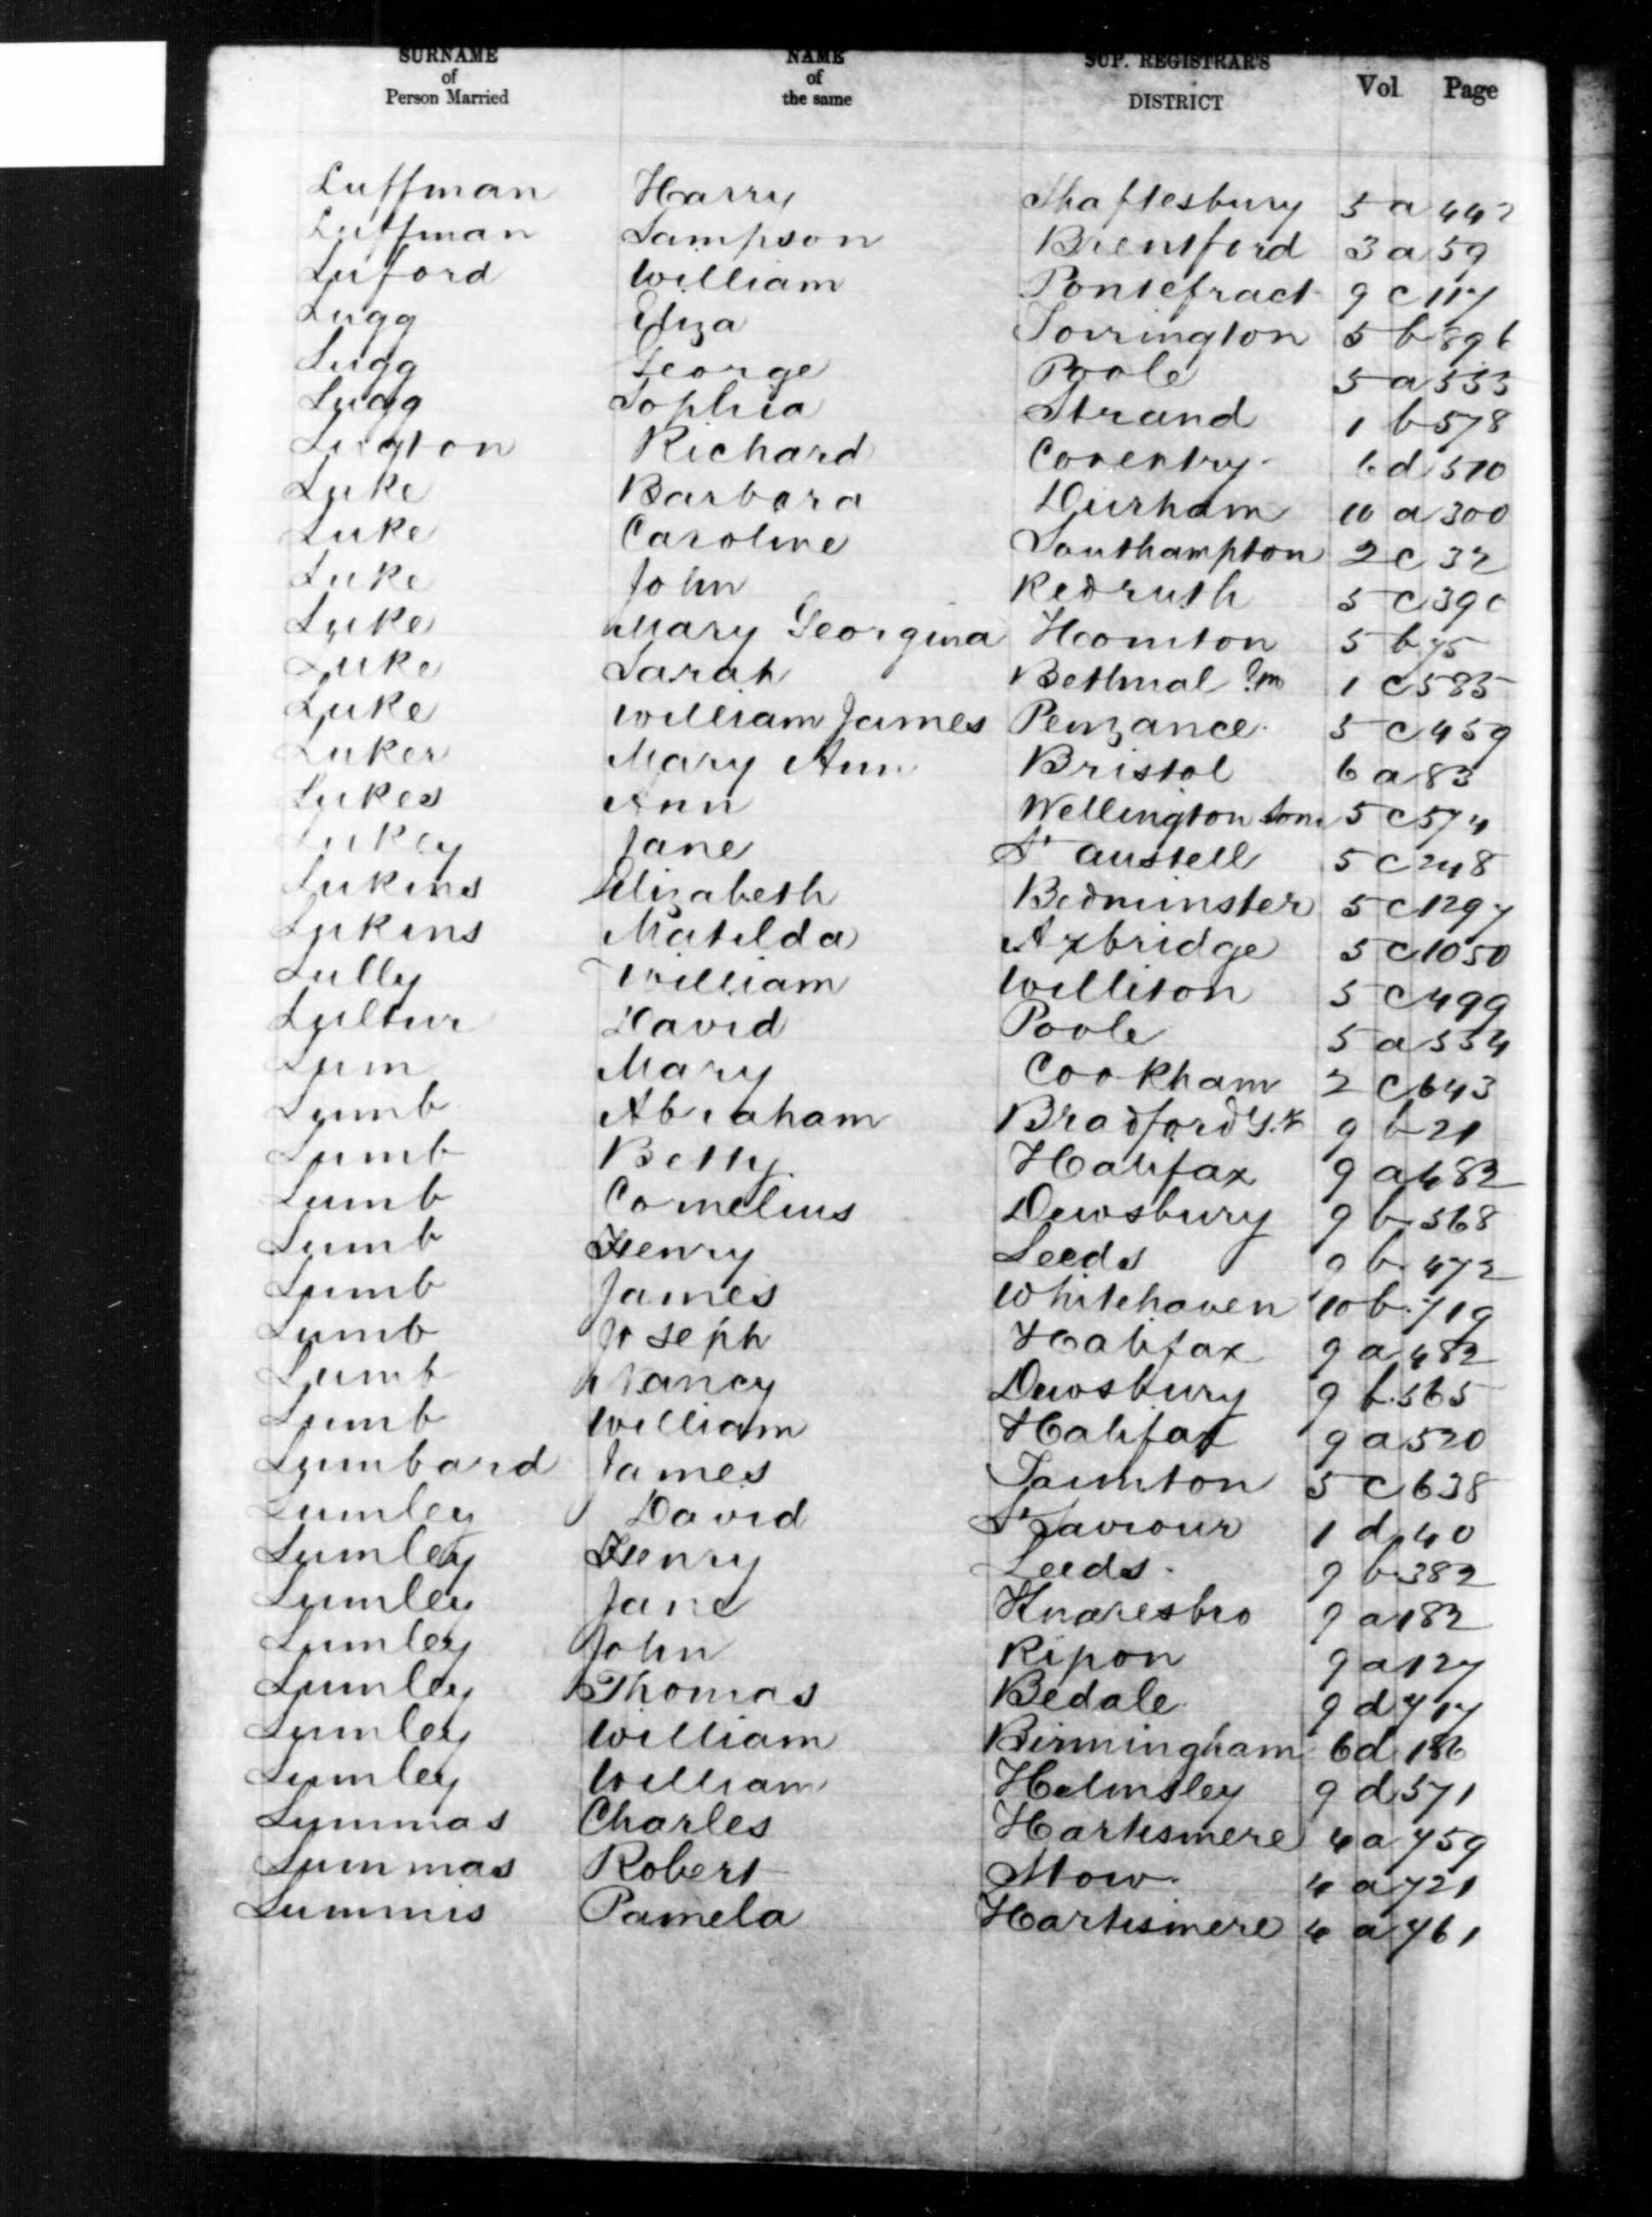 SURNAME of Person Married NAME of the same SUP. REGISTRAR'S DISTRICT Vol Page
Luffman Harry Shaftesbury 5 a 442
Luffman Sampson Brentford 3 a 59
Luford William Pontefract 9 c 117
Lugg Eliza Torrington 5 b 896
Lugg George Poole 5 a 533
Lugg Sophia Strand 1 b 578
Lugton Richard Coventry 6 d 510
Luke Barbara Durham 10 a 300
Luke Caroline Southampton 2 c 32
Luke John Redruth 5 c 390
Luke Mary Georgina Honiton 5 b 75
Luke Sarah Bethnal Gn 1 c 585
Luke William James Penzance 5 c 459
Luker Mary Ann Bristol 6 a 83
Lukes Ann Wellington Som 5 c 574
Lukey Jane St Austell 5 c 248
Lukins Elizabeth Bedminster 5 c 1297
Lukins Matilda Axbridge 5 c 1050
Lully William Williton 5 c 499
David Poole 5 a 534
Lum Mary Cookham 2 c 643
Lumb Abraham Bradford Y.k 9 b 21
Lumb Betty Halifax 9 a 482
Lumb Cornelius Dewsbury 9 b 568
Lumb Henry Leeds 9 b 472
Lumb James Whitehaven 10 b 719
Lumb Joseph Halifax 9 a 482
Lumb Nancy Dewsbury 9 b 565
Lumb William Halifax 9 a 520
Lumbard James Taunton 5 c 638
Lumley David St Saviour 1 d 40
Lumley Henry Leeds 9 b 382
Lumley Jane Knaresbro 9 a 182
Lumley John Ripon 9 a 127
Lumley Thomas Bedale 9 d 717
Lumley William Birmingham 6 d 186
Lumley William Helmsley 9 d 571
Lummas Charles Hartismere 4 a 759
Lummas Robert Stow 4 a 721
Lummis Pamela Hartismere 4 a 761